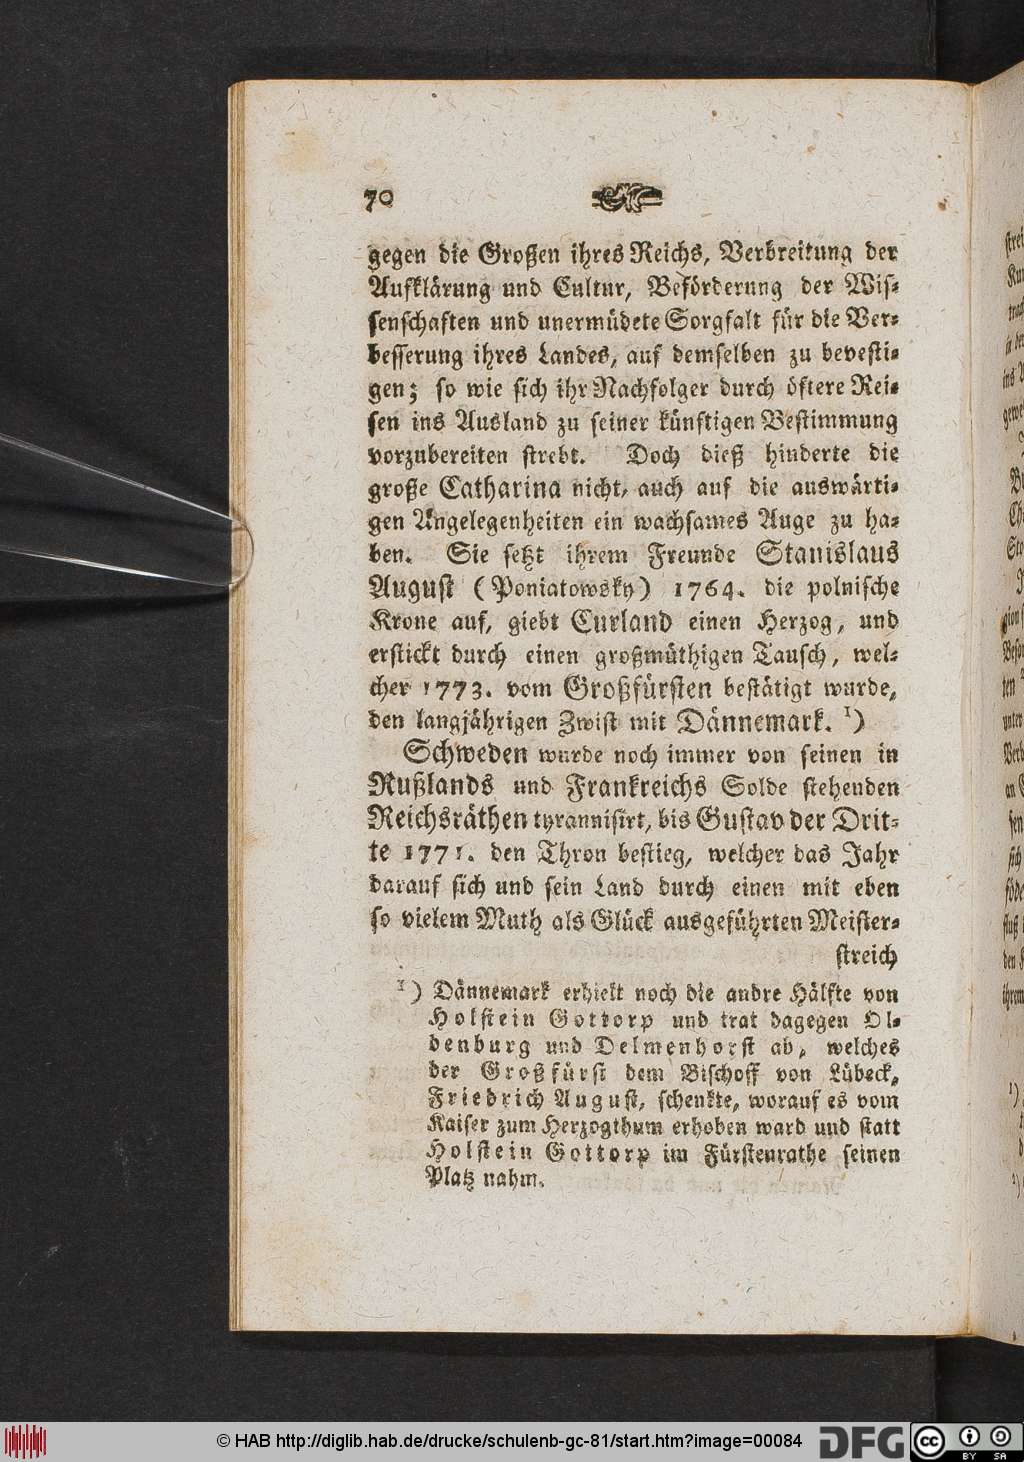 70
gegen die Großen ihres Reichs, Verbreitung der
Aufklärung und Cultur, Beförderung der Wis-
senschaften und unermüdete Sorgfalt für die Ver-
besserung ihres Landes, auf demselben zu bevesti-
gen; so wie sich ihr Nachfolger durch öftere Rei-
sen ins Ausland zu seiner künftigen Bestimmung
vorzubereiten strebt. Doch dieß hinderte die
große Catharina nicht, auch auf die auswärti-
gen Angelegenheiten ein wachsames Auge zu ha-
ben. Sie setzt ihrem Freunde Stanislaus
August (Poniatowsky) 1764. die polnische
Krone auf, giebt Curland einen Herzog, und
erstickt durch einen großmüthigen Tausch, wel-
cher 1773. vom Großfürsten bestätigt wurde,
den langjährigen Zwist mit Dännemark. 1)
Schweden wurde noch immer von seinen in
Rußlands und Frankreichs Solde stehenden
Reichsräthen tyrannisirt, bis Gustav der Drit-
te 1771. den Thron bestieg, welcher das Jahr
darauf sich und sein Land durch einen mit eben
so vielem Muth als Glück ausgeführten Meister-
streich
1) Dännemark erhielt noch die andre Hälfte von
Holstein Gottorp und trat dagegen Ol-
denburg und Delmenhorst ab, welches
der Großfürst dem Bischoff von Lübeck,
Friedrich August, schenkte, worauf es vom
Kaiser zum Herzogthum erhoben ward und statt
Holstein Gottorp im Fürstenrathe seinen
Platz nahm.
© HAB http://diglib.hab.de/drucke/schulenb-gc-81/start.htm?image=00084
DFG
cc BY SA